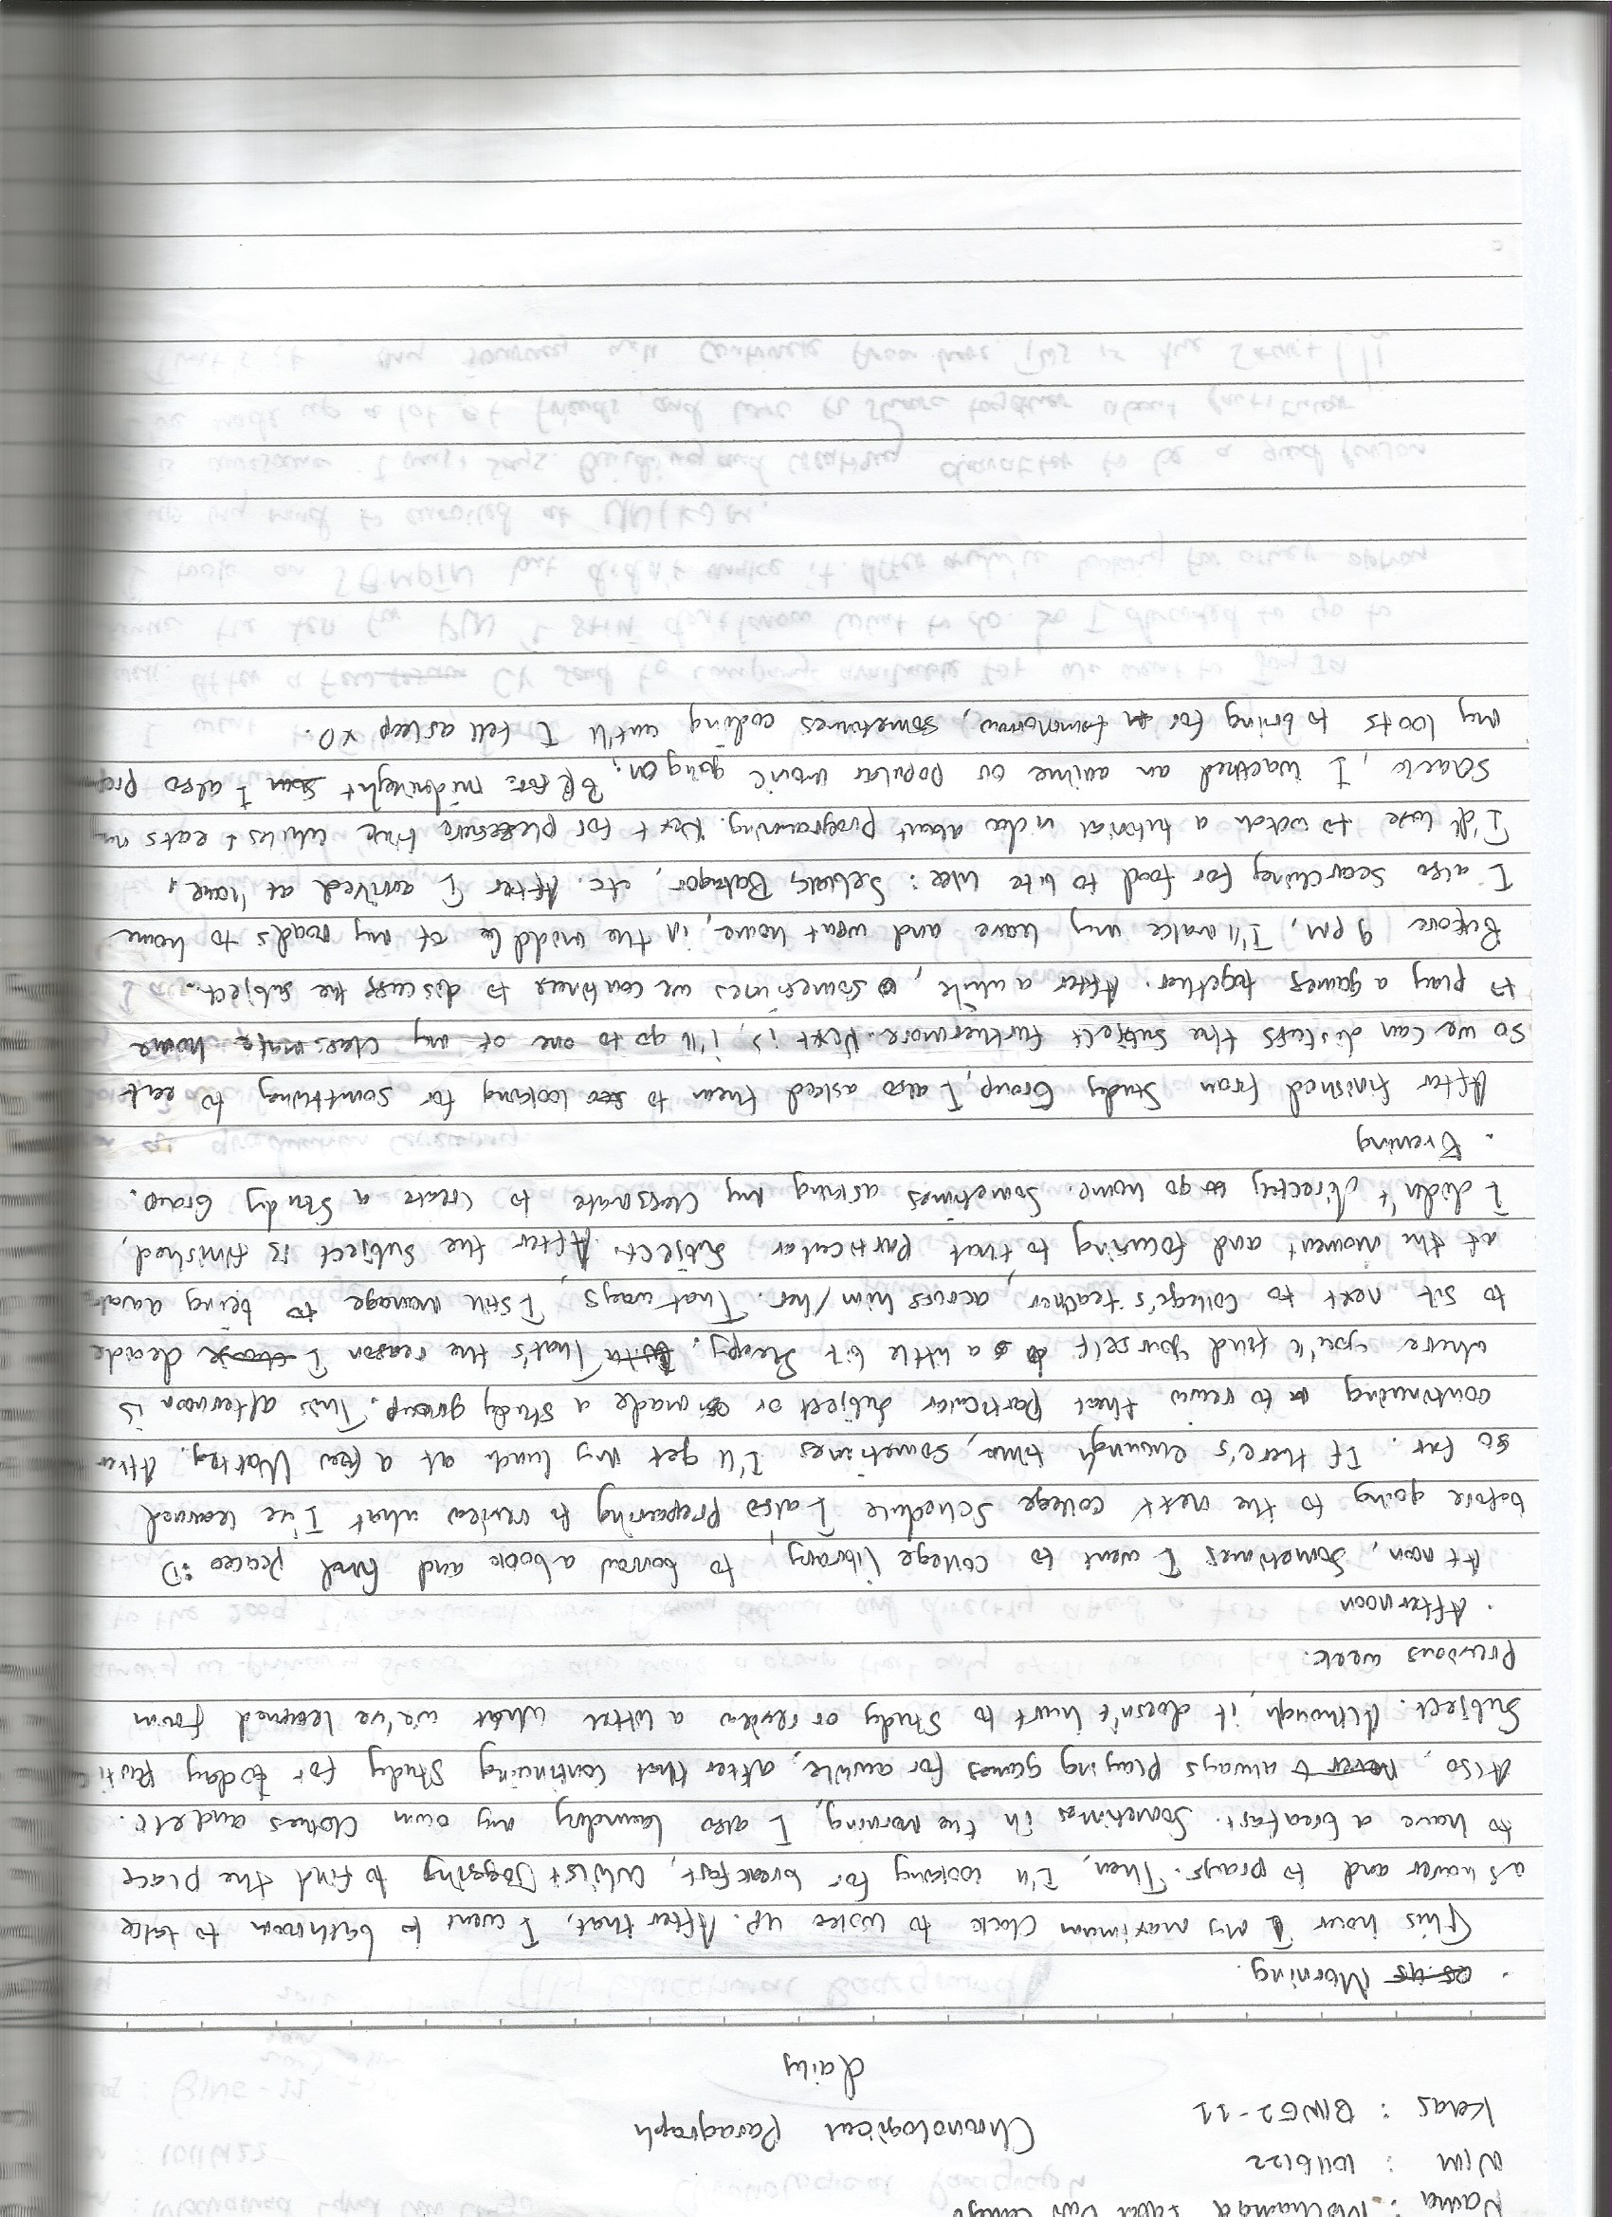 Nama : Mochamad
NIM : 10116122
Kelas : BING2-11
Chronological Paragraph
daily
. Morning.
This hour I my maximum clock to woke up. After that, I went to bathroom to take
a shower and to prays. Then, I'll looking for breakfast, whilst Jogging to find the place
to have a breafast. Sometimes in the morning, I also laundry my own clothes and etc.
Also, always playing games for awhile, after that continuing study for today
Subject. Although, it doesn't hurt to study or review a littel what we've learned form
Previous week.
. Afternoon
At noon, sometimes I went to college library, to borrow a book and find peaces :D
before going to the next college schedule I also preparing to review what I've learned
so far. If there's enough time, sometimes I'll get my lunch at a few Warteg. After
continuing to revew that particular subject or made a study group. This afternoon is
where you'll find yourself a little bit sleepy. That's the reason I decide
to sit next to college's teacher, acorss him/her. That ways, I still manage to being
at the moment and focusing to that particular subject. After the subject is finished,
I didn't directly go home. Sometimes asking my classmate to create a Study Group.
. Evening
After finished from Study Group, I also asked them to looking for something to eat
so we can discuss the subject furthermore. Next is, I'll go to one of my classmate home
to play a games together. After a while, sometimes we continues to discuss the subject.
Before 9 PM, I'll make my leave and went home, in the middle of my roads to home
I also searching for food to bite like : Seblak, Batagor, etc. After I arrived at home,
I'll like to watch a tutorial video about programming. Next for pleasure time whiles I eats my
snack, I wacthed an anime or popular movie going on. Before midnight I also
my loots to bring for tommorow, sometimes coding untill I fell asleep xD.